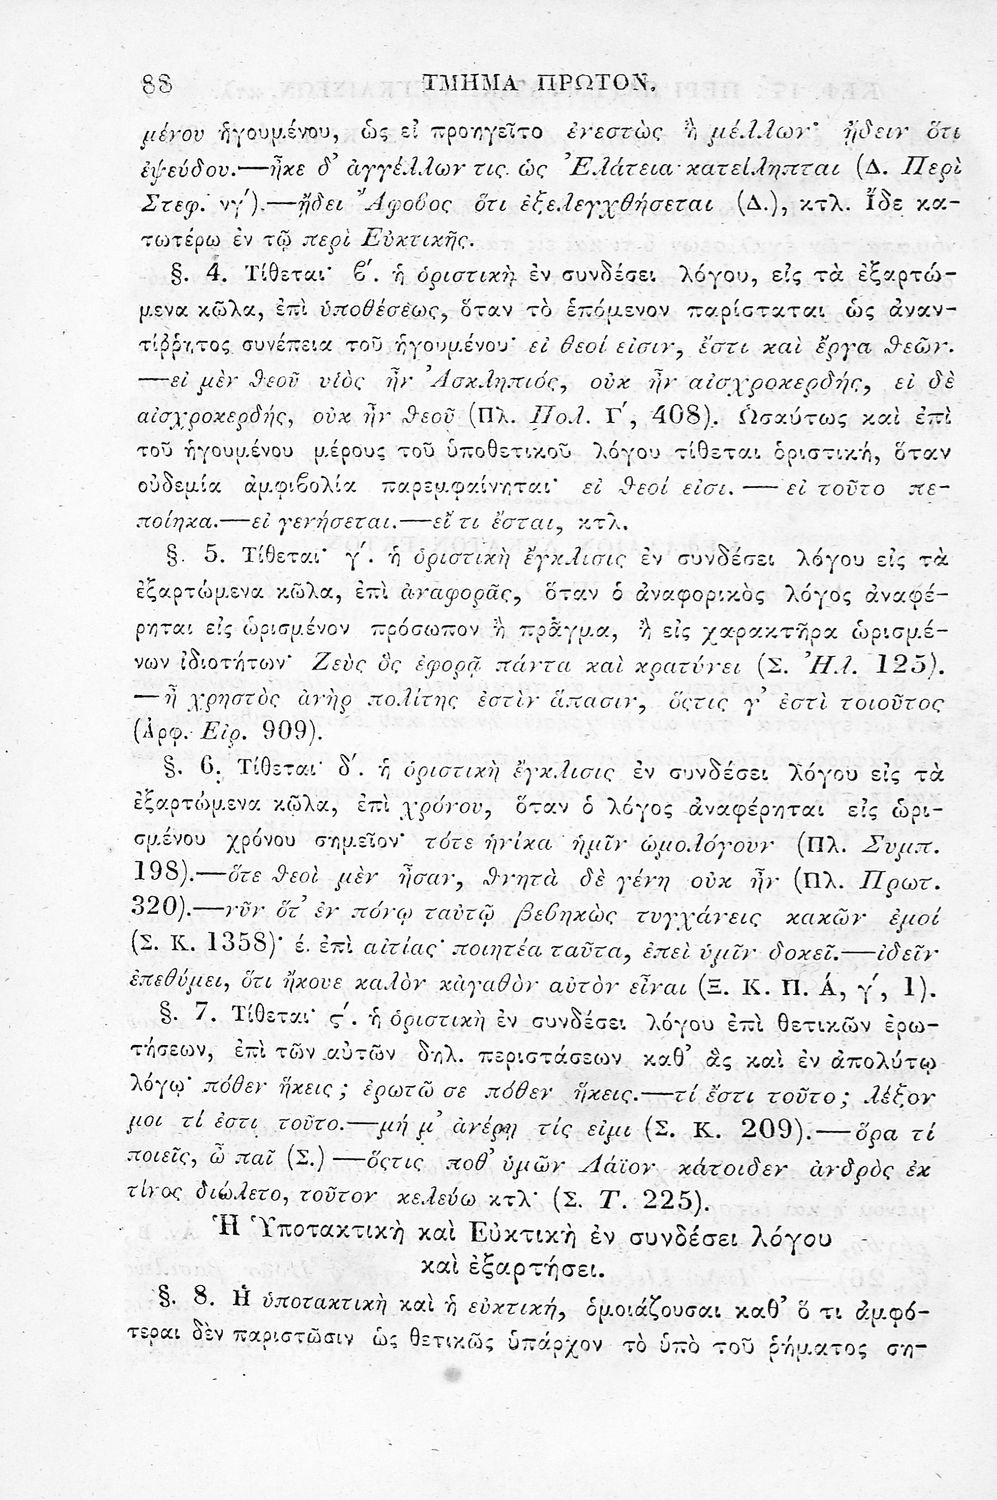 88 ΤΜΗΜΑ ΠΡΩΤΟΝ.
μένου ἡγουμένου, ὡς εἰ προηγεῖτο ἐνεστὼς ἢ μέλλων· ᾔδειν ὅτι
ἐψεύδου.—ἧκε δ’ ἀγγέλλων τις ὡς Ἐλάτεια κατείληπται (Δ. Περὶ
Στεφ. νγ′).—ᾔδει Ἄφοβος ὅτι ἐξελεγχθήσεται (Δ.), κτλ. Ἴδε κα-
τωτέρω ἐν τῷ περὶ Εὐκτικῆς.
§. 4. Τίθεται· β′. ἡ ὁριστικὴ ἐν συνδέσει λόγου, εἰς τὰ ἐξαρτώ-
μενα κῶλα, ἐπὶ ὑποθέσεως, ὅταν τὸ ἑπόμενον παρίσταται ὡς ἀναν-
τίῤῥητος συνέπεια τοῦ ἡγουμένου· εἰ θεοί εἰσιν, ἔστι καὶ ἔργα θεῶν.
—εἰ μὲν θεοῦ υἱὸς ἦν Ἀσκληπιός, οὐκ ἦν αἰσχροκερδής, εἰ δὲ
αἰσχροκερδής, οὐκ ἦν θεοῦ (Πλ. Πολ. Γ′, 408). Ὡσαύτως καὶ ἐπὶ
τοῦ ἡγουμένου μέρους τοῦ ὑποθετικοῦ λόγου τίθεται ὁριστική, ὅταν
οὐδεμία ἀμφιβολία παρεμφαίνηται· εἰ θεοί εἰσι.—εἰ τοῦτο πε-
ποίηκα.—εἰ γενήσεται.—εἴ τι ἔσται, κτλ.
§. 5. Τίθεται· γ′. ἡ ὁριστικὴ ἔγκλισις ἐν συνδέσει λόγου εἰς τὰ
ἐξαρτώμενα κῶλα, ἐπὶ ἀναφορᾶς, ὅταν ὁ ἀναφορικὸς λόγος ἀναφέ-
ρηται εἰς ὡρισμένον πρόσωπον ἢ πρᾶγμα, ἢ εἰς χαρακτῆρα ὡρισμέ-
νων ἰδιοτήτων· Ζεὺς ὃς ἐφορᾷ πάντα καὶ κρατύνει (Σ. Ἠλ. 125).
—ἦ χρηστὸς ἀνὴρ πολίτης ἐστὶν ἅπασιν, ὅςτις γ’ ἐστὶ τοιοῦτος
(Ἀρφ. Εἰρ. 909).
§. 6. Τίθεται· δ′. ἡ ὁριστικὴ ἔγκλισις ἐν συνδέσει λόγου εἰς τὰ
ἐξαρτώμενα κῶλα, ἐπὶ χρόνου, ὅταν ὁ λόγος ἀναφέρηται εἰς ὡρι-
σμένου χρόνου σημεῖον· τότε ἡνίκα ἡμῖν ὡμολόγουν (Πλ. Συμπ.
198).—ὅτε θεοὶ μὲν ἦσαν, θνητὰ δὲ γένη οὐκ ἦν (Πλ. Πρωτ.
320).—νῦν ὅτ’ ἐν πόνῳ ταὐτῷ βεβηκὼς τυγχάνεις κακῶν ἐμοί
(Σ. Κ. 1358)· έ. ἐπὶ αἰτίας· ποιητέα ταῦτα, ἐπεὶ ὑμῖν δοκεῖ.—ἰδεῖν
ἐπεθύμει, ὅτι ἤκουε καλὸν κἀγαθὸν αὐτὸν εἶναι (Ξ. Κ. Π. Ά, γ′, 1).
§. 7. Τίθεται· ς′. ἡ ὁριστικὴ ἐν συνδέσει λόγου ἐπὶ θετικῶν ἐρω-
τήσεων, ἐπὶ τῶν αὐτῶν δηλ. περιστάσεων καθ’ ἃς καὶ ἐν ἀπολύτῳ
λόγῳ· πόθεν ἥκεις; ἐρωτῶ σε πόθεν ἥκεις.—τί ἔστι τοῦτο; λέξον
μοι τί ἐστι τοῦτο.—μή μ’ ἀνέρῃ τίς εἰμι (Σ. Κ. 209).—ὅρα τί
ποιεῖς, ὦ παῖ (Σ.)—ὅςτις ποθ’ ὑμῶν Λάϊον κάτοιδεν ἀνδρὸς ἐκ
τίνος διώλετο, τοῦτον κελεύω κτλ· (Σ. Τ. 225).
Ἡ Ὑποτακτικὴ καὶ Εὐκτικὴ ἐν συνδέσει λόγου
καὶ ἐξαρτήσει.
§. 8. Ἡ ὑποτακτικὴ καὶ ἡ εὐκτική, ὁμοιάζουσαι καθ’ ὅ τι ἀμφό-
τεραι δὲν παριστῶσιν ὡς θετικῶς ὑπάρχον τὸ ὑπὸ τοῦ ῥήματος ση-